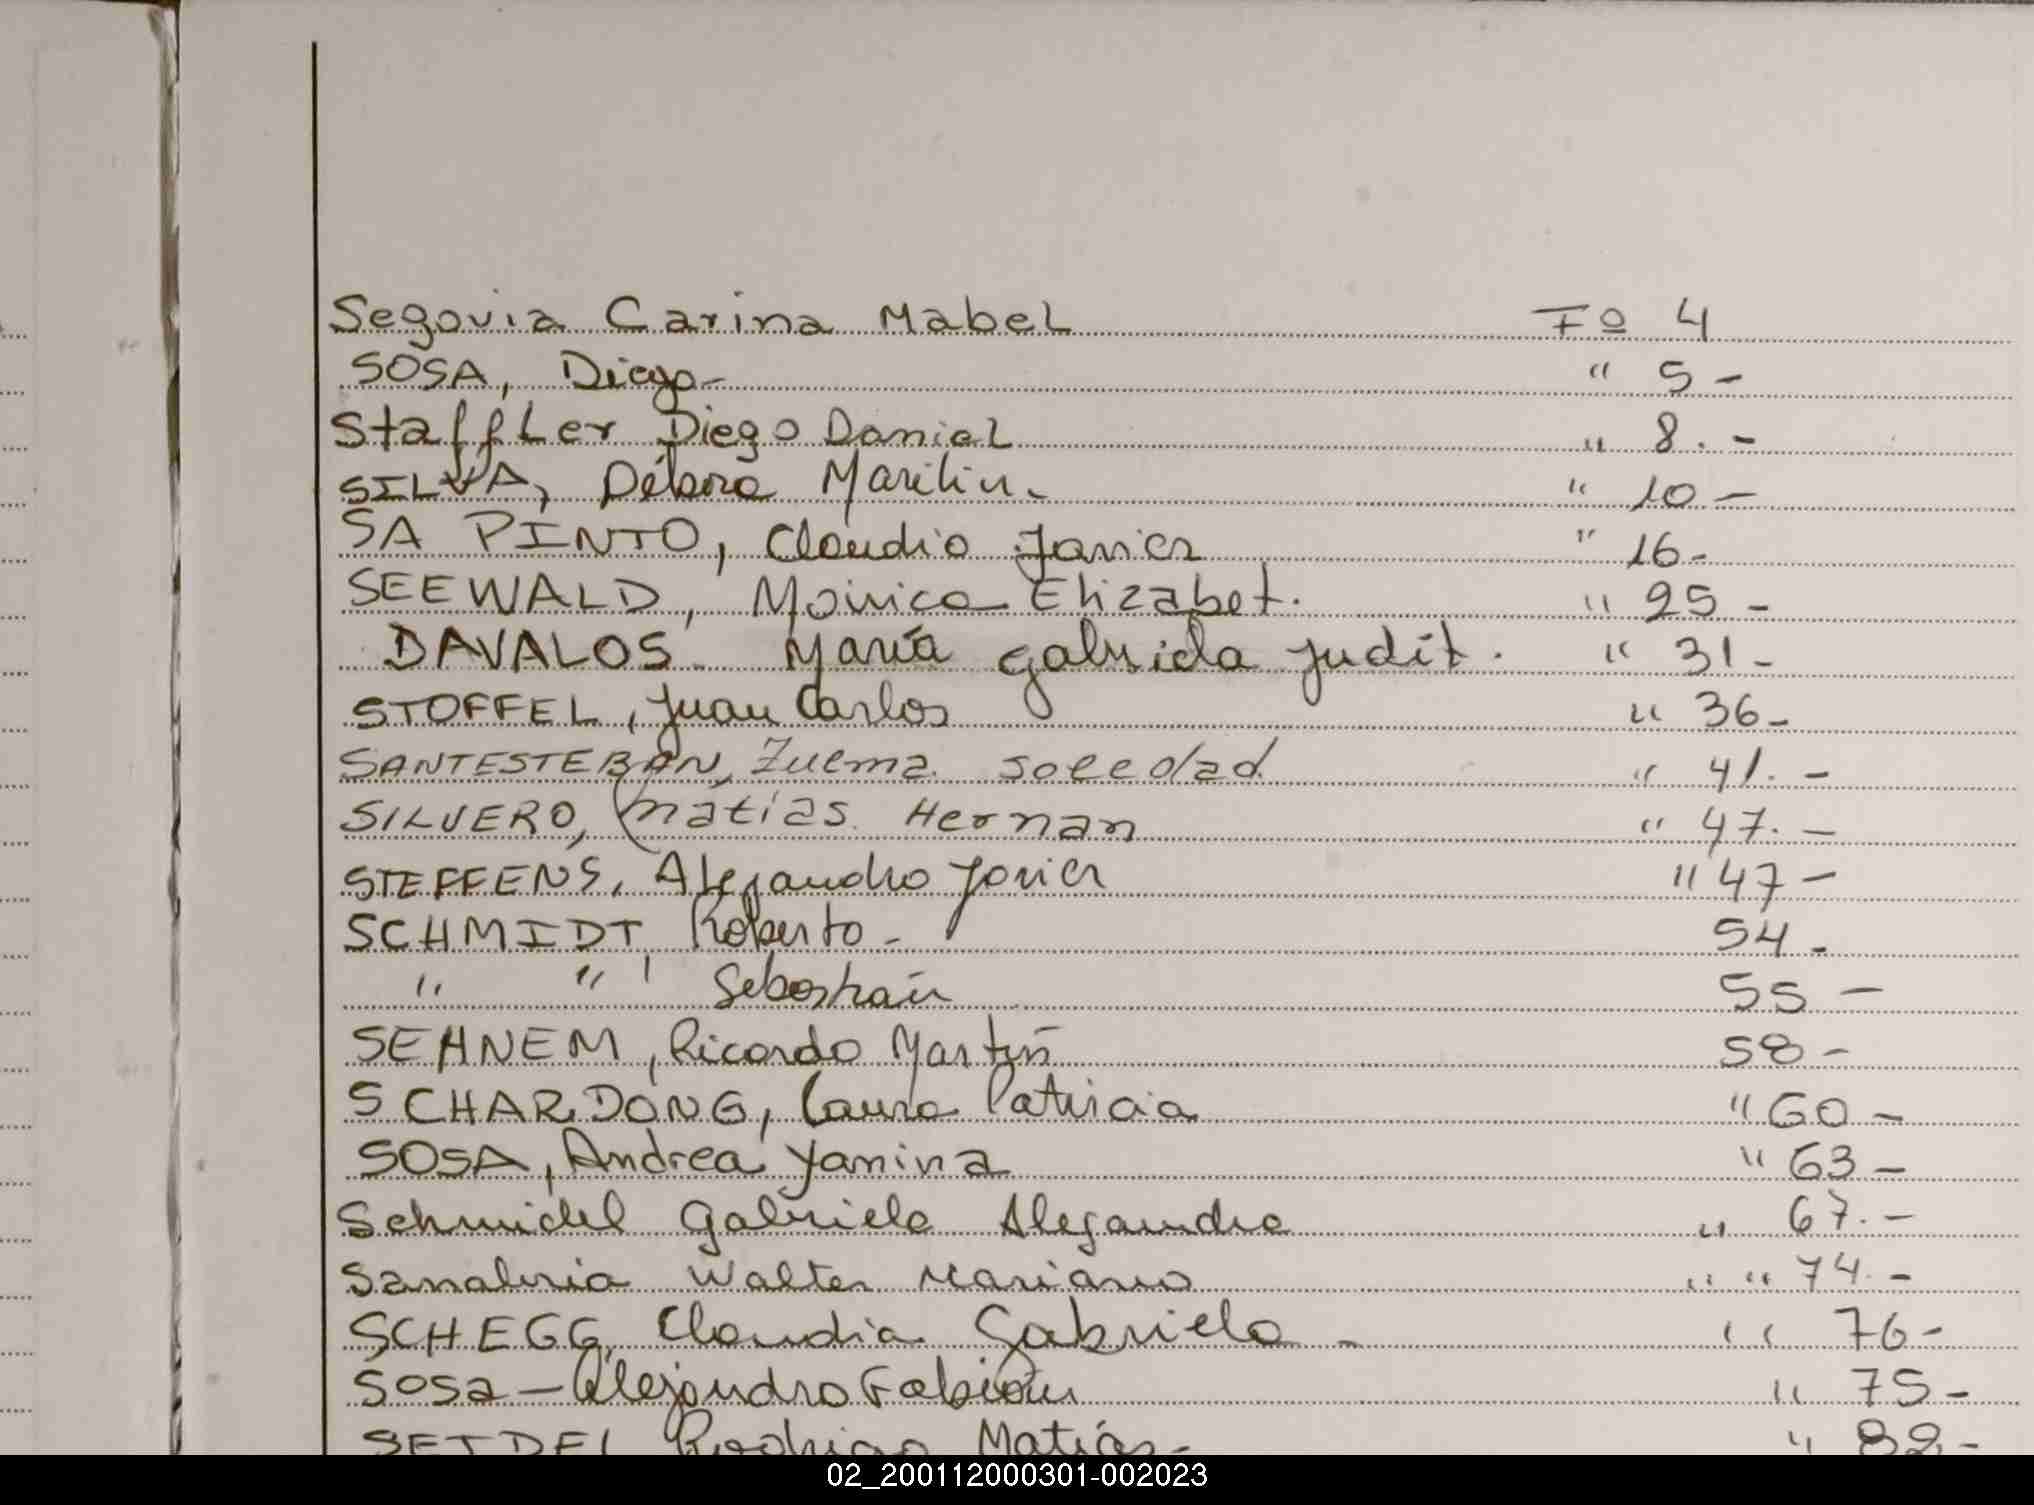 Segovia Carina Mabel Fº 4
SOSA, Diego- " 5-
Staffler Diego Daniel " 8.-
SILVA, Débora Marilin.- " 10-
SA PINTO, Claudio Javier " 16-
SEEWALD, Mónica Elizabet. " 25-
DAVALOS María Gabriela Judit. " 31-
STOFFEL, Juan Carlos " 36-
SANTESTEBAN, Zulma Soledad " 41.-
SILVERO, Matías Hernan " 47.-
STEFFENS, Alejandro Javier " 47-
SCHMIDT, Roberto- 54-
" " , Sebastián 55-
SEHNEM, Ricardo Martín 58-
SCHARDONG, Laura Patricia " 60-
SOSA, Andrea Yanina " 63-
Schmidel Gabriela Alejandra " 67.-
Sanabria Walter Mariano " " 74.-
SCHEGG, Claudia Gabriela- " 76-
Sosa-Alejandro Fabián " 75-
SEIDEL Rodrigo Matías- " 82-
02_200112000301-002023